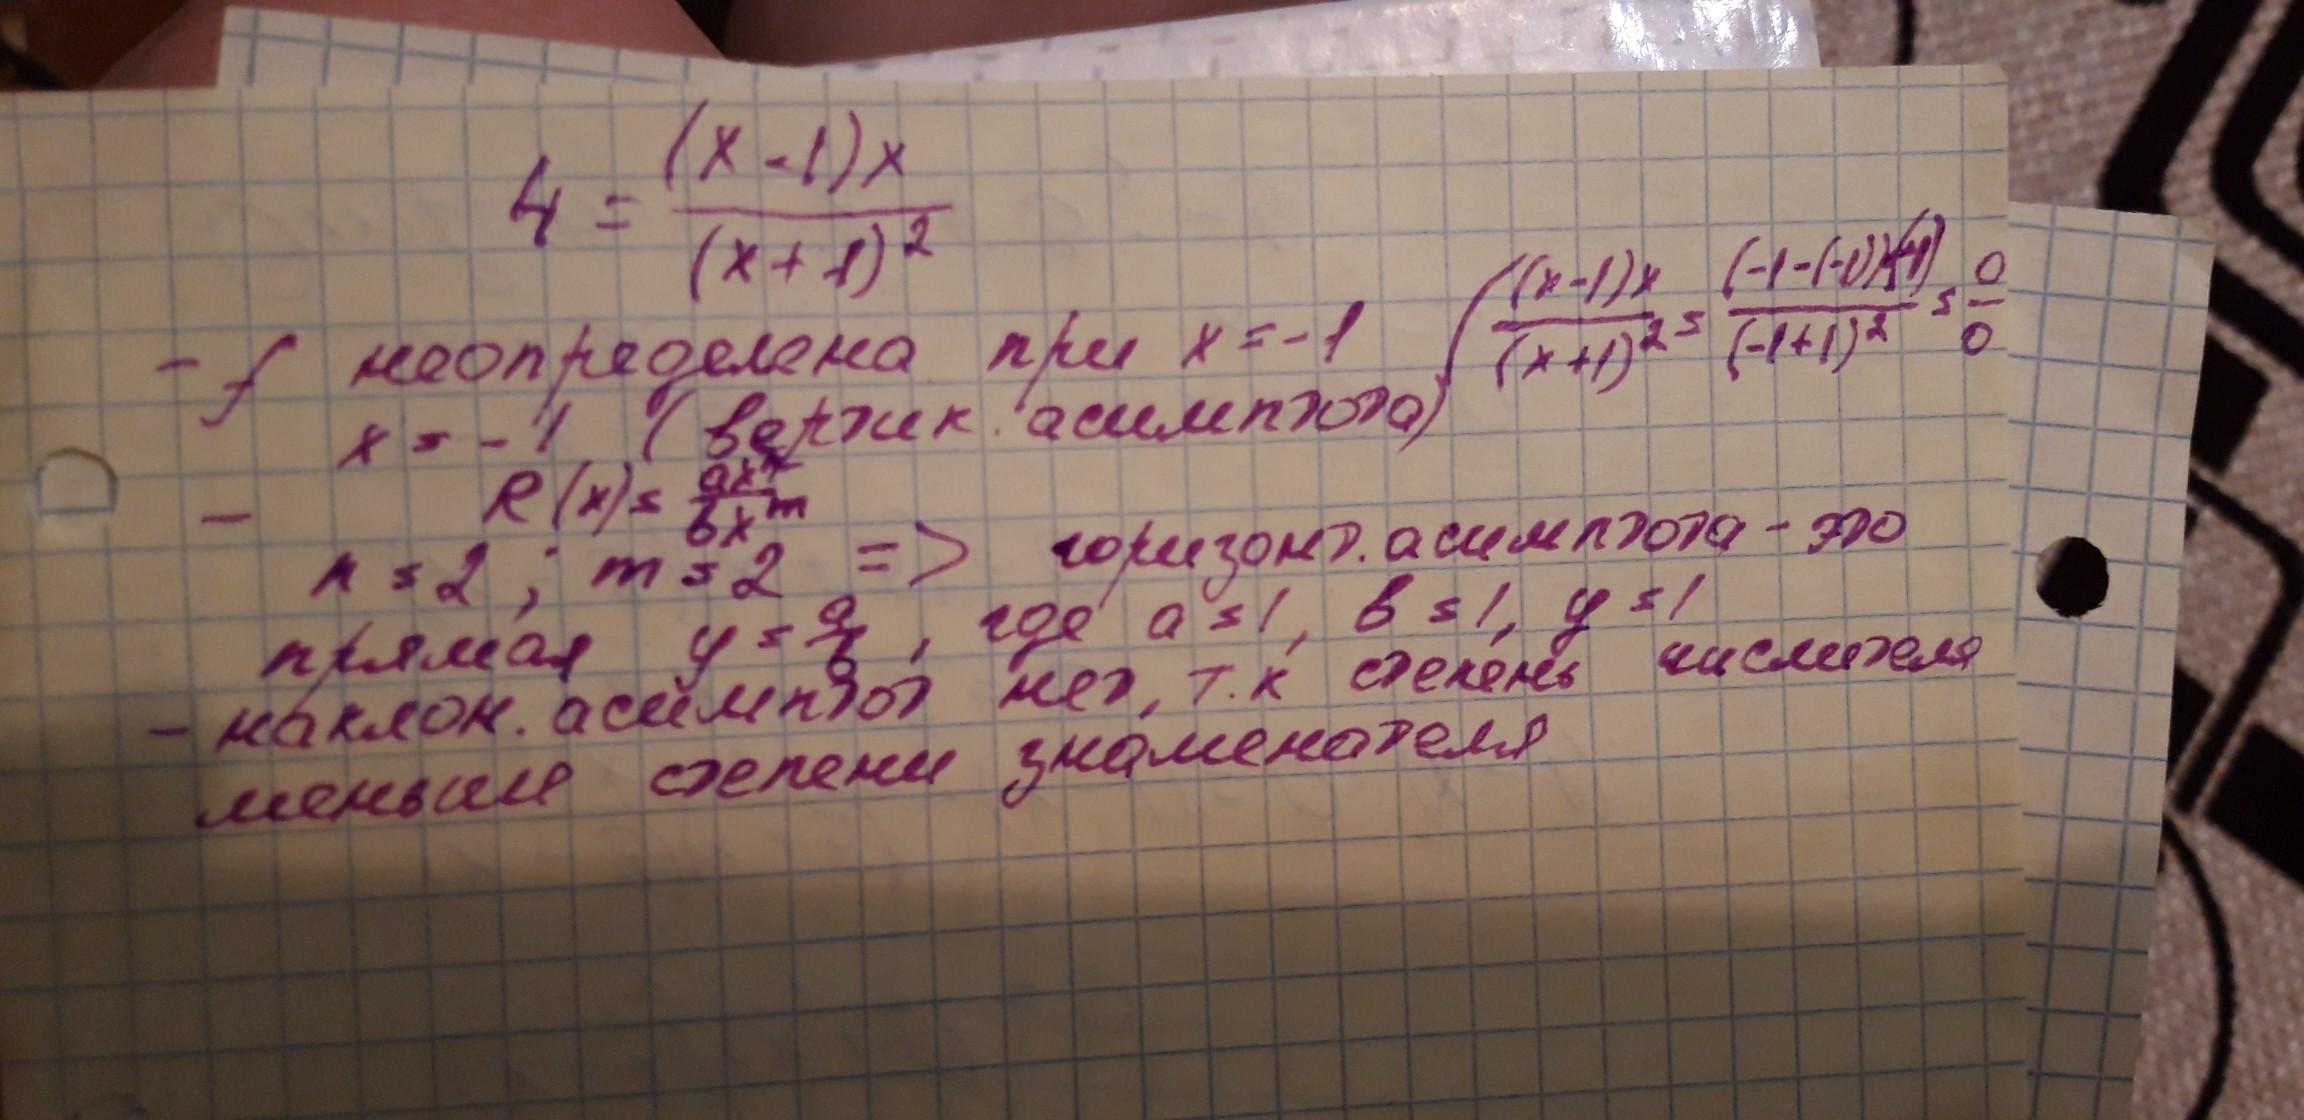 4 = (x-1)x / (x+1)²
- f неопределена при x = -1 ( ((x-1)x / (x+1)² = (-1-(-1))(-1) / (-1+1)² = 0/0
x = -1 (вертик. асимптота)
- R(x) = axⁿ / bxᵐ
n = 2 ; m = 2 => горизонт. асимптота - это
прямая y = a/b , где a = 1, b = 1, y = 1
- наклон. асимптот нет, т.к степень числителя
меньше степени знаменателя